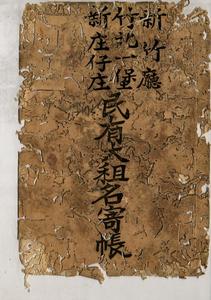 新竹廳
竹北一堡
新庄仔庄
民有大租名寄帳